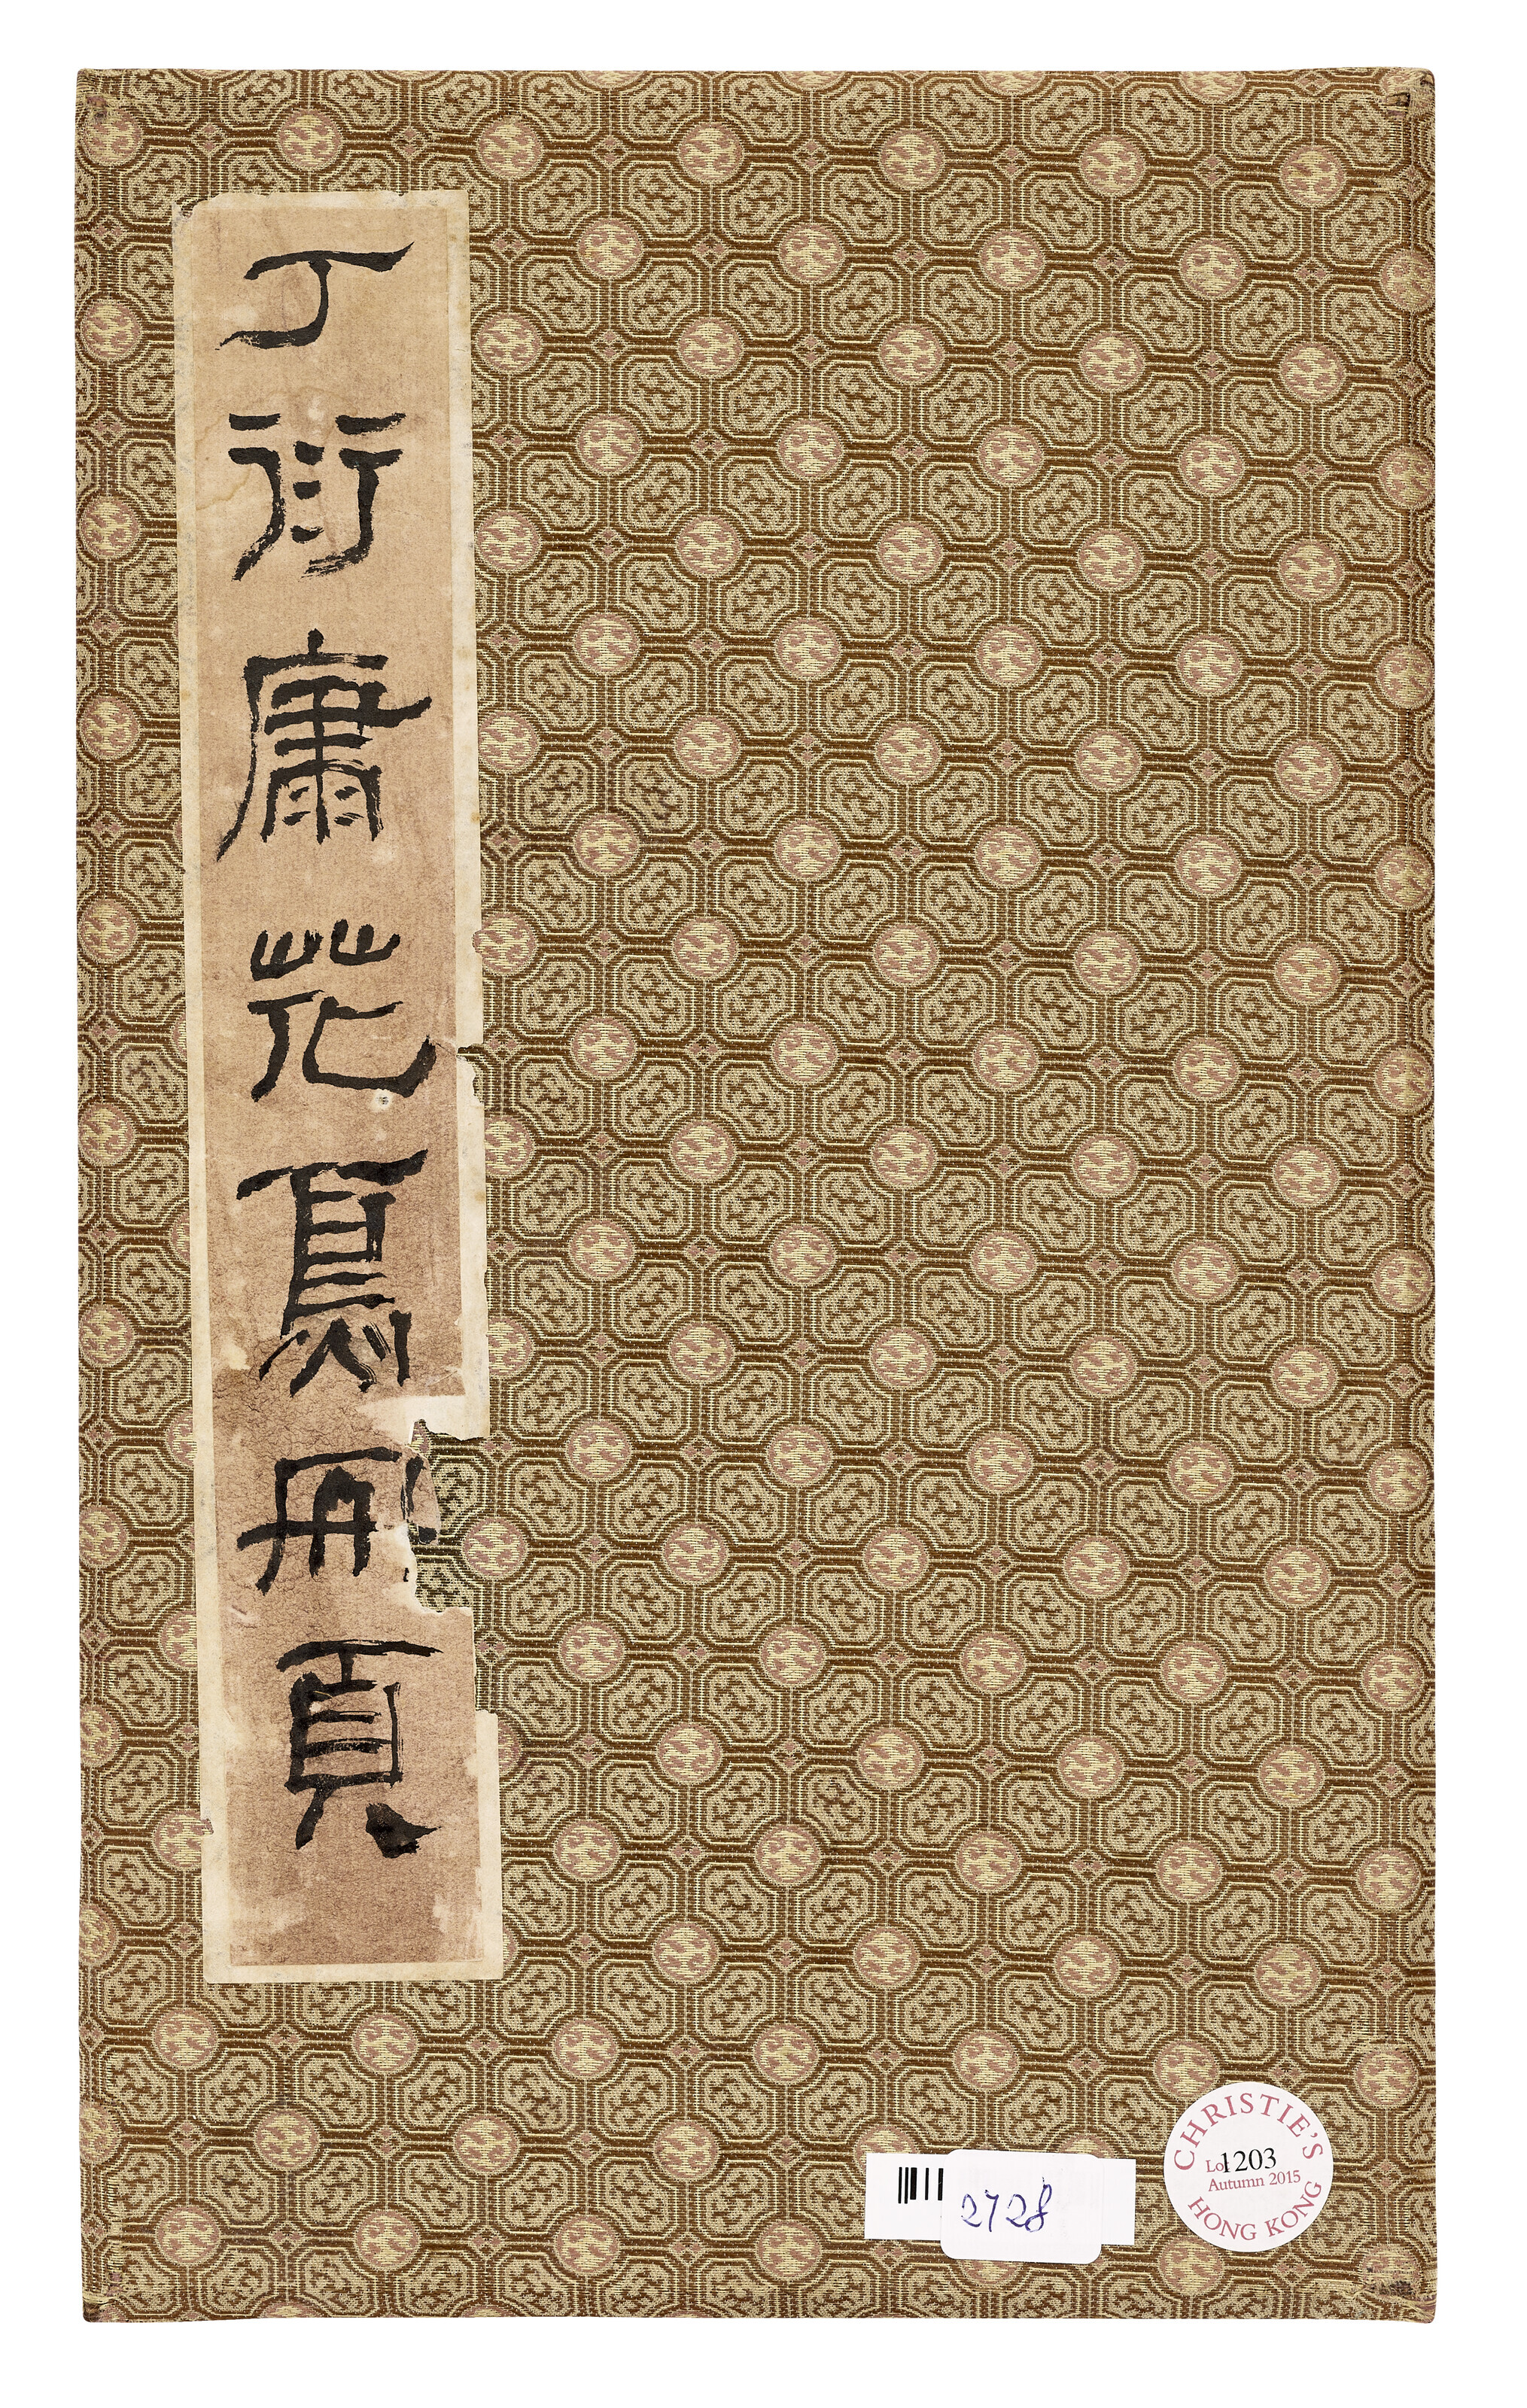 丁衍庸花鳥冊頁
2728
CHRISTIE'S
Lot 1203
Autumn 2015
HONG KONG